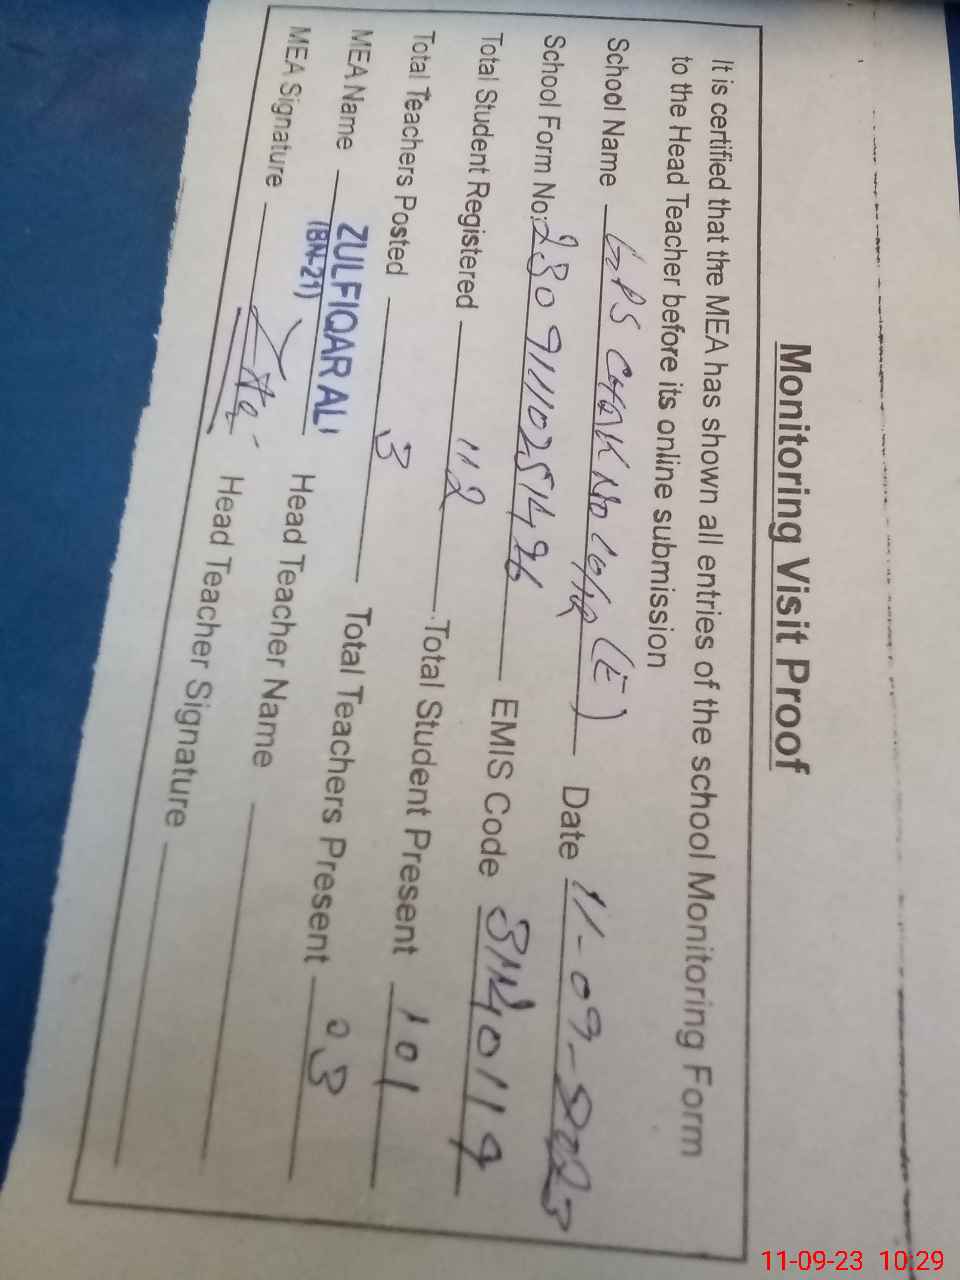 Monitoring Visit Proof
It is certified that the MEA has shown all entries of the school Monitoring Form
to the Head Teacher before its online submission
School Name GPS CHAK No 10/ (E) Date 11-09-2023
School Form No: EMIS Code
Total Student Registered 112 Total Student Present 101
Total Teachers Posted 3 Total Teachers Present 03
MEA Name ZULFIQAR ALI Head Teacher Name
(BN-21)
MEA Signature Head Teacher Signature
11-09-23 10:29